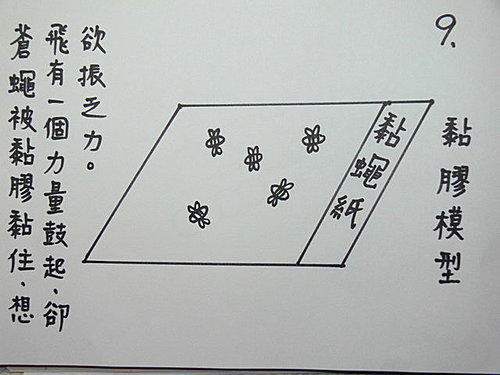 9.
黏膠模型
黏蠅紙
蒼蠅被黏膠黏住,想
飛有一個力量鼓起,卻
欲振乏力。